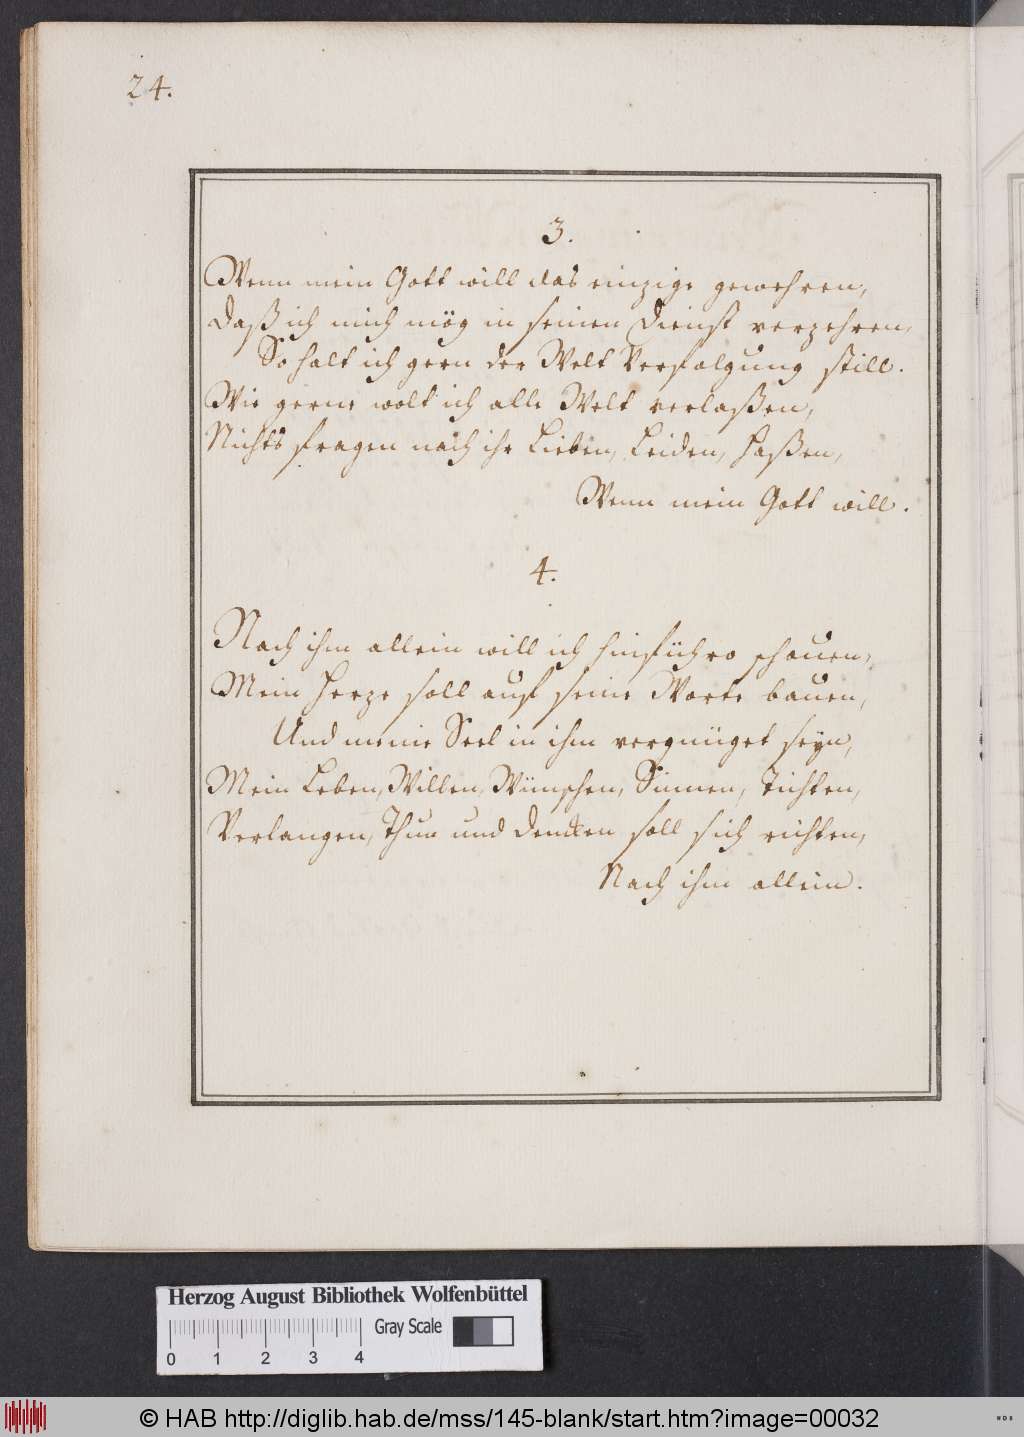 24.
3.
Wenn mein Gott will das einzige gewehren,
Daß ich mich mög in seinen Dienst verzehren,
So halt ich gern der Welt Verfolgung still.
Wie gerne wolt ich alle Welt verlaßen,
Nichts fragen nach ihr Lieben, Leiden, Haßen,
Wenn mein Gott will.
4.
Nach ihm allein will ich hinführo schauen,
Mein Herze soll auf seine Worte bauen,
Und meine Seel in ihm vergnüget seyn,
Mein Leben, Willen, Wünschen, Sinnen, Tichten,
Verlangen, Thun und Dencken soll sich richten,
Nach ihm allein.
Herzog August Bibliothek Wolfenbüttel
Gray Scale
0 1 2 3 4
© HAB http://diglib.hab.de/mss/145-blank/start.htm?image=00032